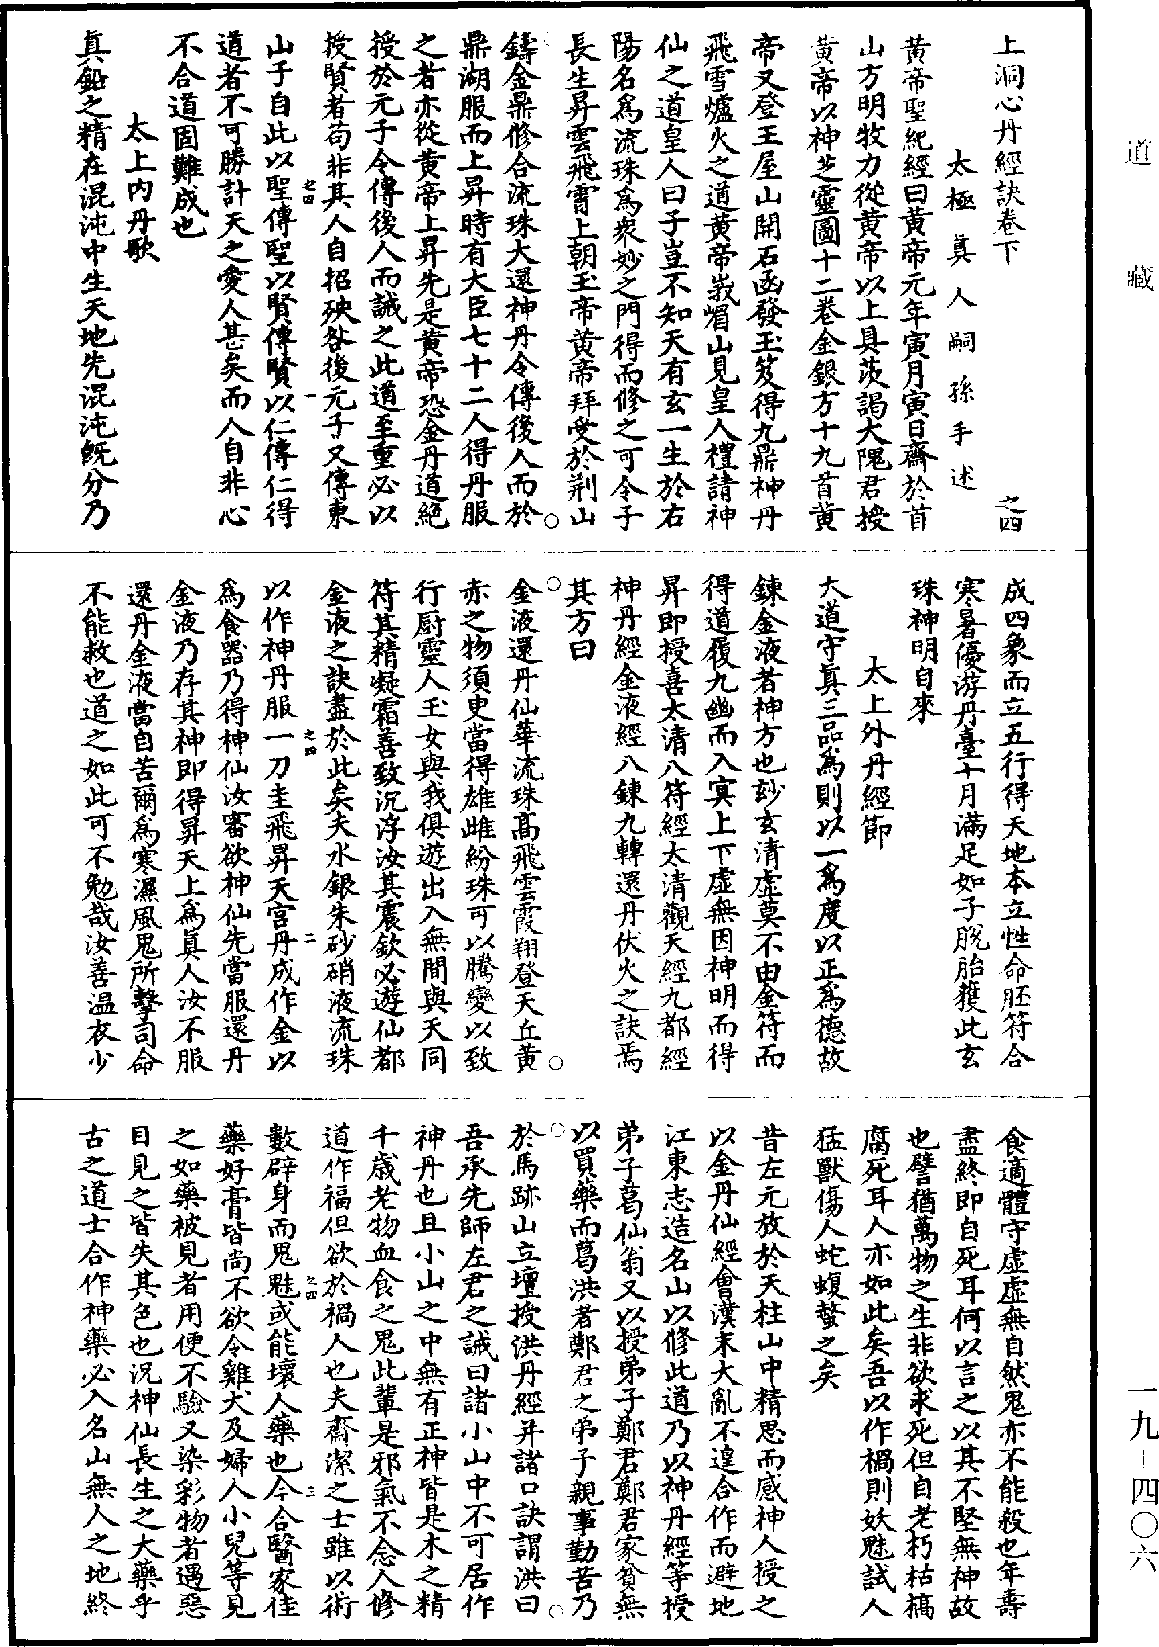 道藏
上洞心丹經訣卷下 之四
太極真人嗣孫手述
黃帝聖紀經曰黃帝元年寅月寅日齋於首
山方明牧力從黃帝以上具茨謁大隗君授
黃帝以神芝靈圖十二卷金銀方十九首黃
帝又登王屋山開石函發玉笈得九鼎神丹
飛雪爐火之道黃帝峩嵋山見皇人禮請神
仙之道皇人曰子豈不知天有玄一生於右
陽名為流珠為眾妙之門得而修之可令子
長生昇雲飛霄上朝玉帝黃帝拜受於荊山
鑄金鼎修合流珠大還神丹令傳後人而於
鼎湖服而上昇時有大臣七十二人得丹服
之者亦從黃帝上昇先是黃帝恐金丹道絕
授於元子令傳後人而誡之此道至重必以
授賢者苟非其人自招殃咎後元子又傳東
山子自此以聖傳聖以賢傳賢以仁傳仁得
道者不可勝計天之愛人甚矣而人自非心
不合道固難成也
太上內丹歌
真鉛之精在混沌中生天地先混沌既分乃
成四象而立五行得天地本立性命胚符合
寒暑優游丹臺十月滿足如子脫胎獲此玄
珠神明自來
太上外丹經節
大道守真三品為則以一為度以正為德故
鍊金液者神方也玅玄清虛莫不由金符而
得道履九幽而入冥上下虛無因神明而得
昇即授喜太清八符經太清觀天經九都經
神丹經金液經八鍊九轉還丹伏火之訣焉
其方曰
金液還丹仙華流珠高飛雲霞翔登天丘黃
赤之物須臾當得雄雌紛珠可以騰變以致
行廚靈人玉女與我俱遊出入無間與天同
符其精凝霜善致沉浮汝其震欽必遊仙都
金液之訣盡於此矣夫水銀朱砂硝液流珠
以作神丹服一刀圭飛昇天宮丹成作金以
為食器乃得神仙汝審欲神仙先當服還丹
金液乃存其神即得昇天上為真人汝不服
還丹金液當自苦爾為寒濕風鬼所擊司命
不能救也道之如此可不勉哉汝善溫衣少
食適體守虛虛無自然鬼亦不能殺也年壽
盡終即自死耳何以言之以其不堅無神故
也譬猶萬物之生非欲求死但自老朽枯槁
腐死耳人亦如此矣吾以作禍則妖魅試人
猛獸傷人蛇蝮螫之矣
昔左元放於天柱山中精思而感神人授之
以金丹仙經會漢末大亂不遑合作而避地
江東志造名山以修此道乃以神丹經等授
弟子葛仙翁又以授弟子鄭君鄭君家貧無
以買藥而葛洪者鄭君之弟子親事勤苦乃
於馬跡山立壇授洪丹經并諸口訣謂洪曰
吾承先師左君之誡曰諸小山中不可居作
神丹也且小山之中無有正神皆是木之精
千歲老物血食之鬼此輩是邪氣不念人修
道作福但欲於禍人也夫齋潔之士雖以術
數辟身而鬼魅或能壞人藥也今合醫家佳
藥好膏皆尚不欲令雞犬及婦人小兒等見
之如藥被見者用便不驗又染彩物者遇惡
目見之皆失其色也況神仙長生之大藥乎
古之道士合作神藥必入名山無人之地終
一九－四〇六